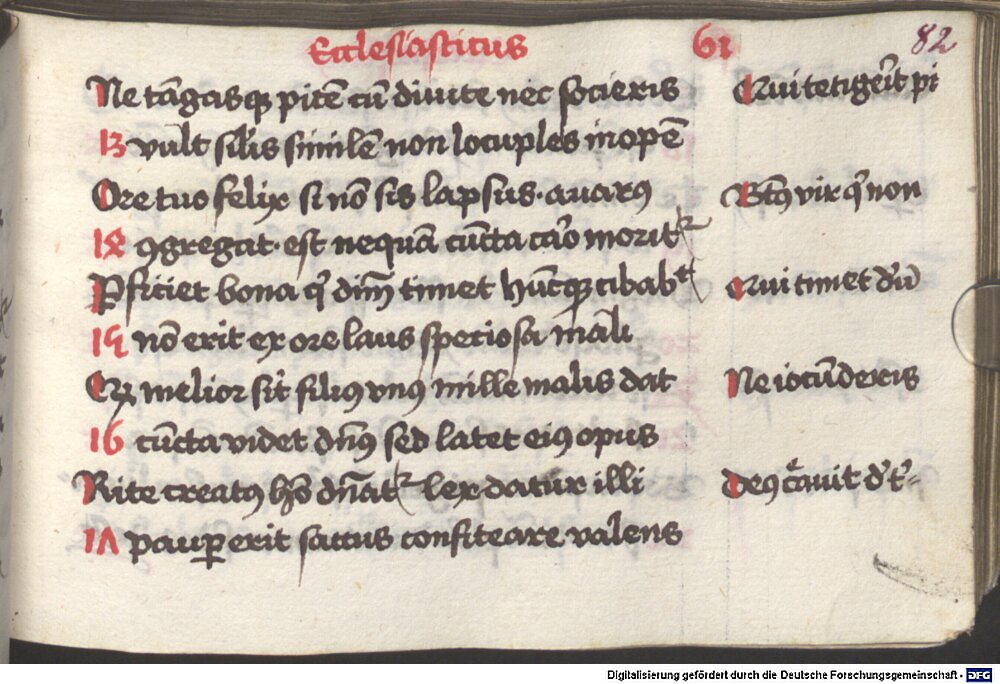 Ecclesiasticus 61 82
Ne tāgasq; picē cū divite nec socieris Qui tetigerit pi
13 vult silis similē non locuples inopē
Ore tuo felix si nō sis lapsus · avarꝰ Btꝰ vir q̇ non
14 ꝯgregat · est nequā cūcta caro morit᷑
Pficiet bona q̇ dn̄m timet hūcq; cibabᵗ Qui timet dn̄
15 nō erit ex ore laus speciosa mali
Qꝫ melior sit filiꝰ vnꝰ mille malis dat Ne iocūderis
16 cūcta videt dn̄s sed latet eiꝰ opus
Rite creatꝰ hō dn̄at᷑ lex datur illi Deꝰ c̾avit de t̾
17 paup erit saccus confiteare valens
Digitalisierung gefördert durch die Deutsche Forschungsgemeinschaft - DFG